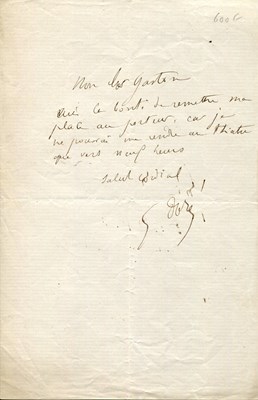 Mon cher Gaston
Aie la bonté de remettre ma
place au porteur, car je
ne pourrai me rendre au théâtre
que vers neuf heures
Salut cordial
G Doré